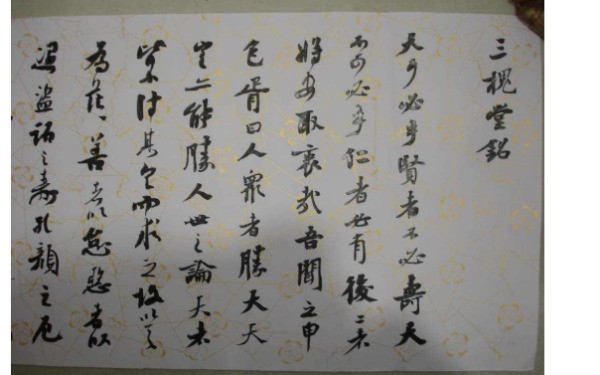 三槐堂銘
天可必乎賢者不必壽天
不可必乎仁者必有後二者
將安取衷哉吾聞之申
包胥曰人衆者勝天天
定亦能勝人世之論天者
皆不待其定而求之故以天
為茫々善者以怠惡者以
肆盜跖之壽孔顏之厄